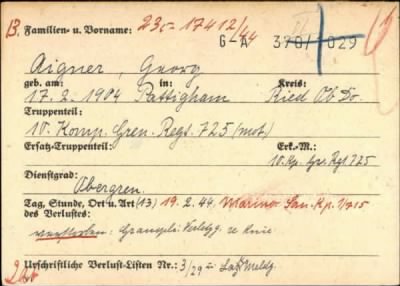 13. Familien- u. Vorname: 235-17412/44
G-A 370/1029
Aigner, Georg
geb. am: in: Kreis:
17. 2. 1904 Pattigham Ried Ob. Do.
Truppenteil:
10. Komp. Gren. Regt. 725 (mot.)
Ersatz-Truppenteil: Erk.-M.:
10. Kp. Gr. Rgt 725
Dienstgrad:
Obergren.
Tag, Stunde, Ort u. Art (13) 19. 2. 44. Marino San. Kp. 1/715
des Verlustes:
verstorben: Granatspl. Verletzg. re Knie
Urschriftliche Verlust-Listen Nr.: 3/29 u. Laz. Meldg.